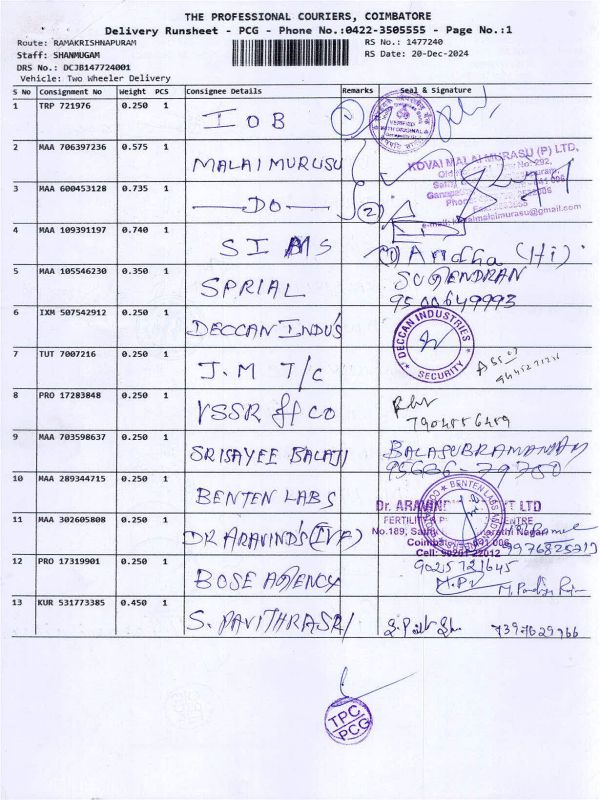 THE PROFESSIONAL COURIERS, COIMBATORE
Delivery Runsheet - PCG - Phone No.:0422-3505555 - Page No.:1
Route: RAMAKRISHNAPURAM RS No.: 1477240
Staff: SHANMUGAM RS Date: 20-Dec-2024
DRS No.: DCJB147724001
Vehicle: Two Wheeler Delivery
S No Consignment No Weight PCS Consignee Details Remarks Seal & Signature
1 TRP 721976 0.250 1 IOB 1
2 MAA 706397236 0.575 1 MALAIMURUSU KOVAI MALAI MURASU (P) LTD,
3 MAA 600453128 0.735 1 —DO— 2
4 MAA 109391197 0.740 1 SIMS Aridha (Hi)
5 MAA 105546230 0.350 1 SPRIAL SUGENDRAN
9500649993
6 IXM 507542912 0.250 1 DECCAN INDUS DECCAN INDUSTRIES
SECURITY
7 TUT 7007216 0.250 1 J.M T/C
8 PRO 17283848 0.250 1 VSSR & CO
7904556459
9 MAA 703598637 0.250 1 SRISAYEE BALAJI BALASUBRAMANIAM
10 MAA 289344715 0.250 1 BENTEN LABS BENTEN LABS
Dr. ARAVIND LTD
FERTILITY CENTRE
11 MAA 302605808 0.250 1 DR ARAVIND'S (IVF) No.189, Nagar
Cell:
12 PRO 17319901 0.250 1 BOSE AGENCY 9025721645
13 KUR 531773385 0.450 1 S. PAVITHRASRI
TPC
PCG